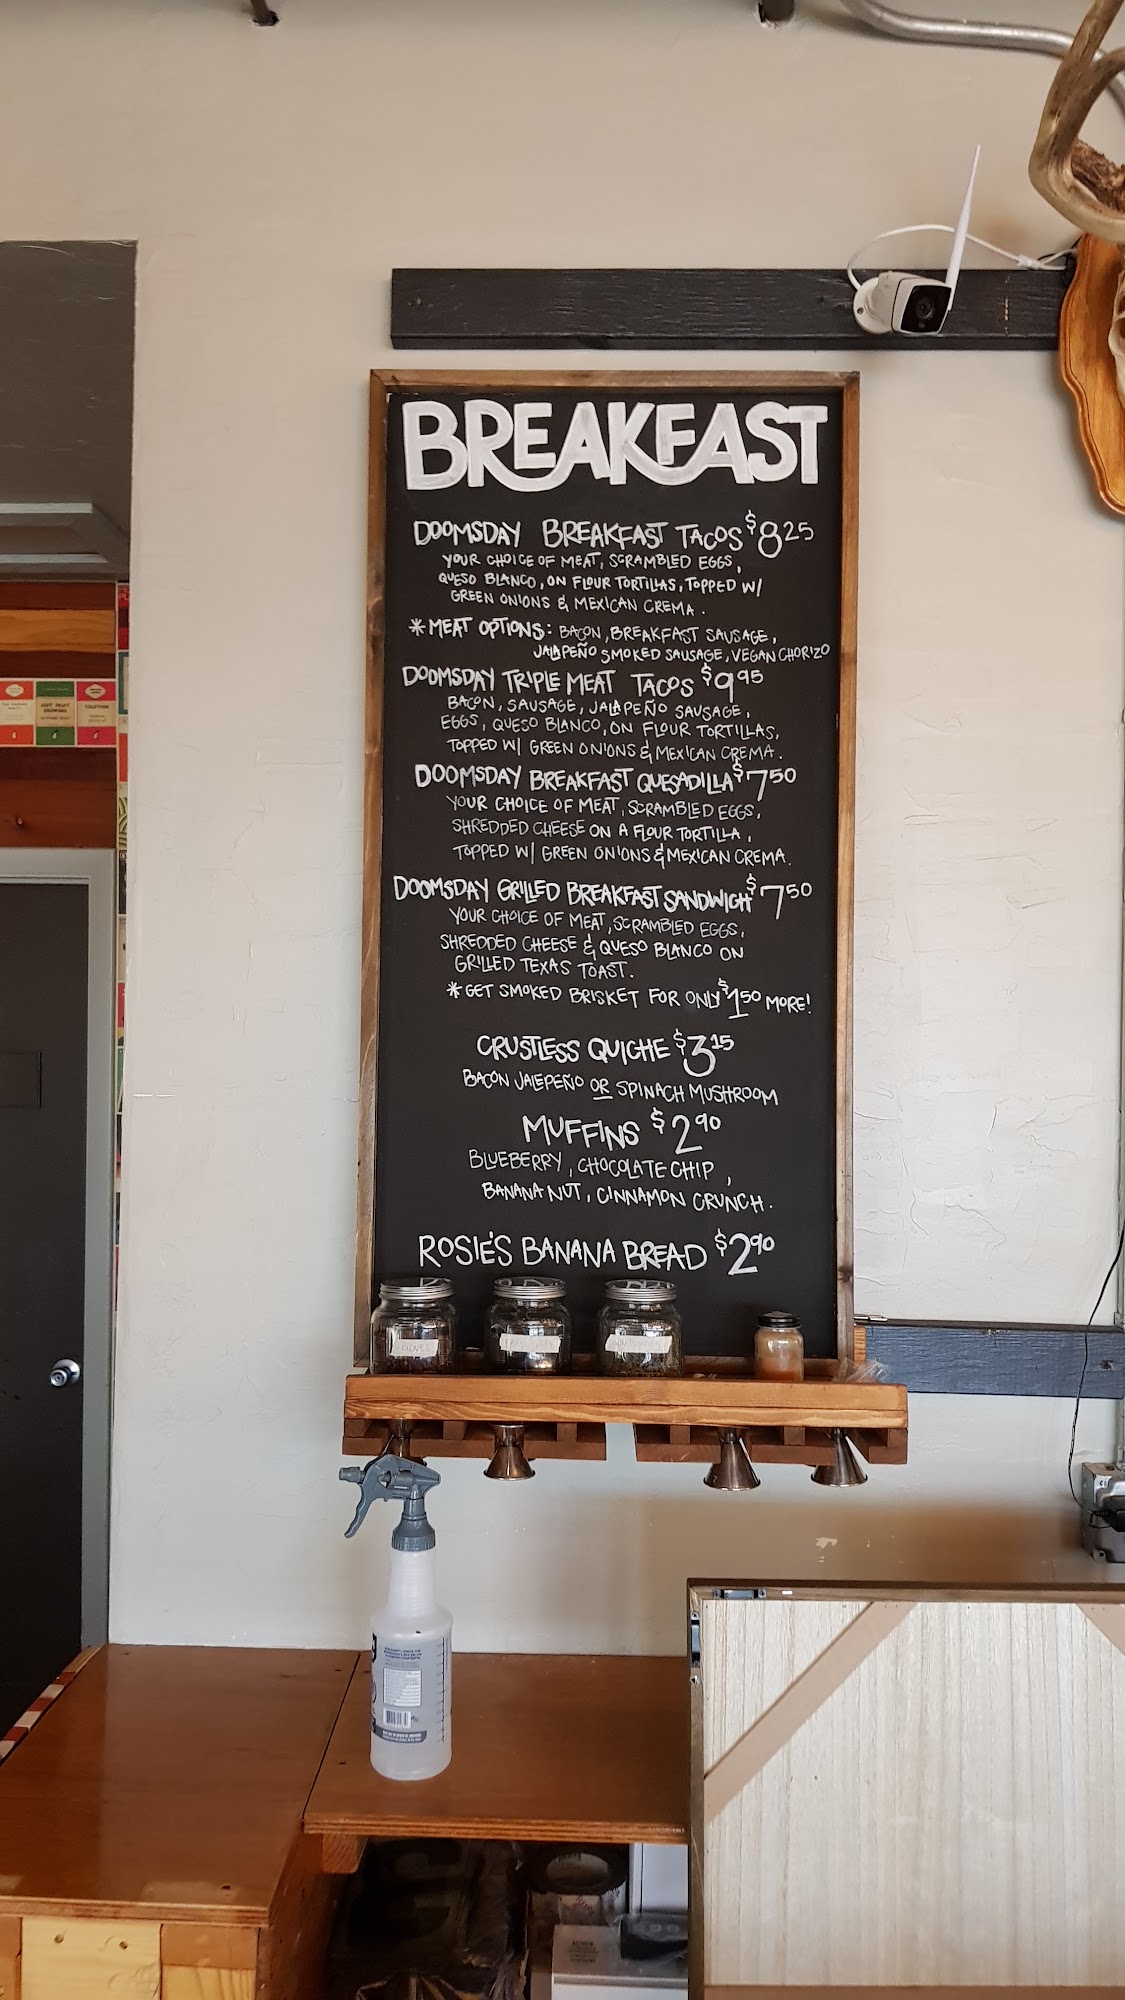 BREAKFAST
DOOMSDAY BREAKFAST TACOS $8.25
YOUR CHOICE OF MEAT, SCRAMBLED EGGS,
QUESO BLANCO, ON FLOUR TORTILLAS, TOPPED W/
GREEN ONIONS & MEXICAN CREMA.
*MEAT OPTIONS: BACON, BREAKFAST SAUSAGE,
JALAPEÑO SMOKED SAUSAGE, VEGAN CHORIZO
DOOMSDAY TRIPLE MEAT TACOS $9.95
BACON, SAUSAGE, JALAPEÑO SAUSAGE,
EGGS, QUESO BLANCO, ON FLOUR TORTILLAS,
TOPPED W/ GREEN ONIONS & MEXICAN CREMA.
DOOMSDAY BREAKFAST QUESADILLA $7.50
YOUR CHOICE OF MEAT, SCRAMBLED EGGS,
SHREDDED CHEESE ON A FLOUR TORTILLA,
TOPPED W/ GREEN ONIONS & MEXICAN CREMA.
DOOMSDAY GRILLED BREAKFAST SANDWICH $7.50
YOUR CHOICE OF MEAT, SCRAMBLED EGGS,
SHREDDED CHEESE & QUESO BLANCO ON
GRILLED TEXAS TOAST.
*GET SMOKED BRISKET FOR ONLY $1.50 MORE!
CRUSTLESS QUICHE $3.15
BACON JALEPEÑO OR SPINACH MUSHROOM
MUFFINS $2.90
BLUEBERRY, CHOCOLATE CHIP,
BANANA NUT, CINNAMON CRUNCH.
ROSIE'S BANANA BREAD $2.90
CLOVES